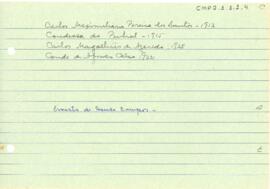 CMP2.2.2.2.4 C
Carlos Maximiliano Pereira dos Santos - 1912
Condessa do Pinhal - 1915
Carlos Magalhães de Azeredo - 1928
Conde de Afonso Celso - 1922
de Campos -